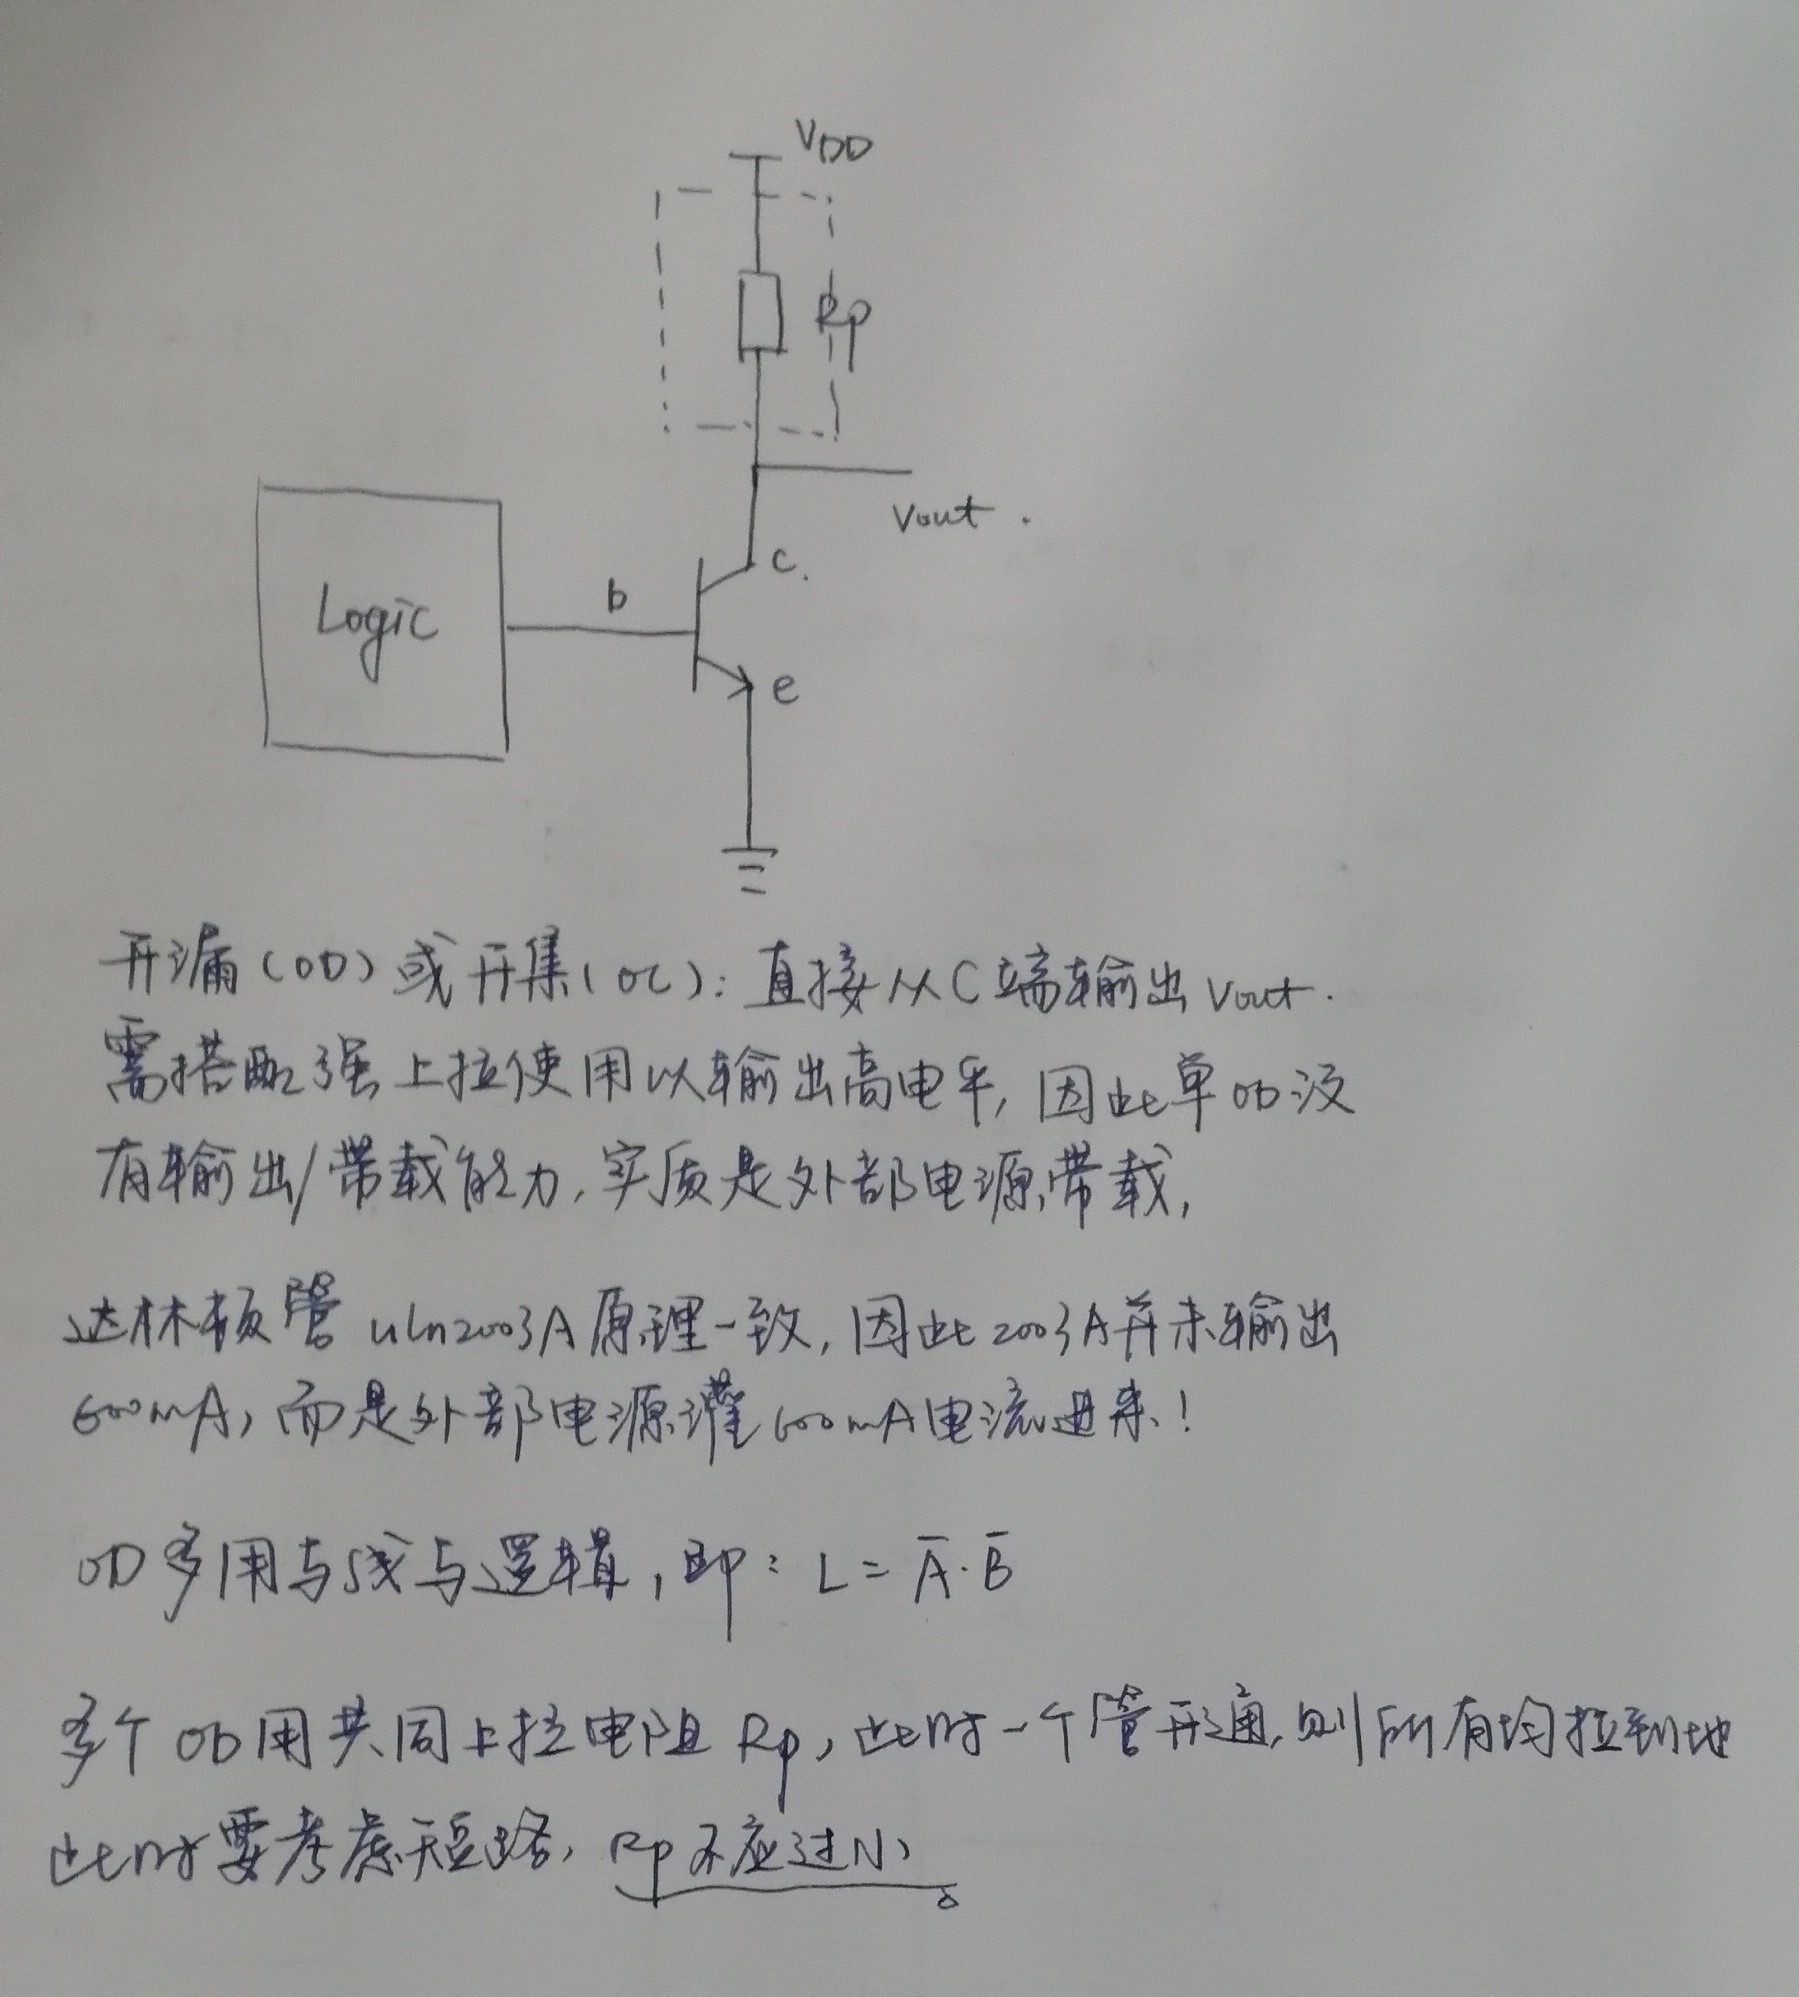 VDD
Rp
Vout.
c.
b
Logic
e
开漏(OD)或开集(OC):直接从C端输出Vout.
需搭配强上拉使用以输出高电平,因此单OD没
有输出/带载能力,实质是外部电源带载,
达林顿管uln2003A原理一致,因此2003A并未输出
600mA,而是外部电源灌600mA电流进来!
OD多用与线与逻辑,即:L=A̅·B̅
多个OD用共同上拉电阻Rp,此时一个管开通,则所有均拉到地
此时要考虑短路,Rp不应过小。